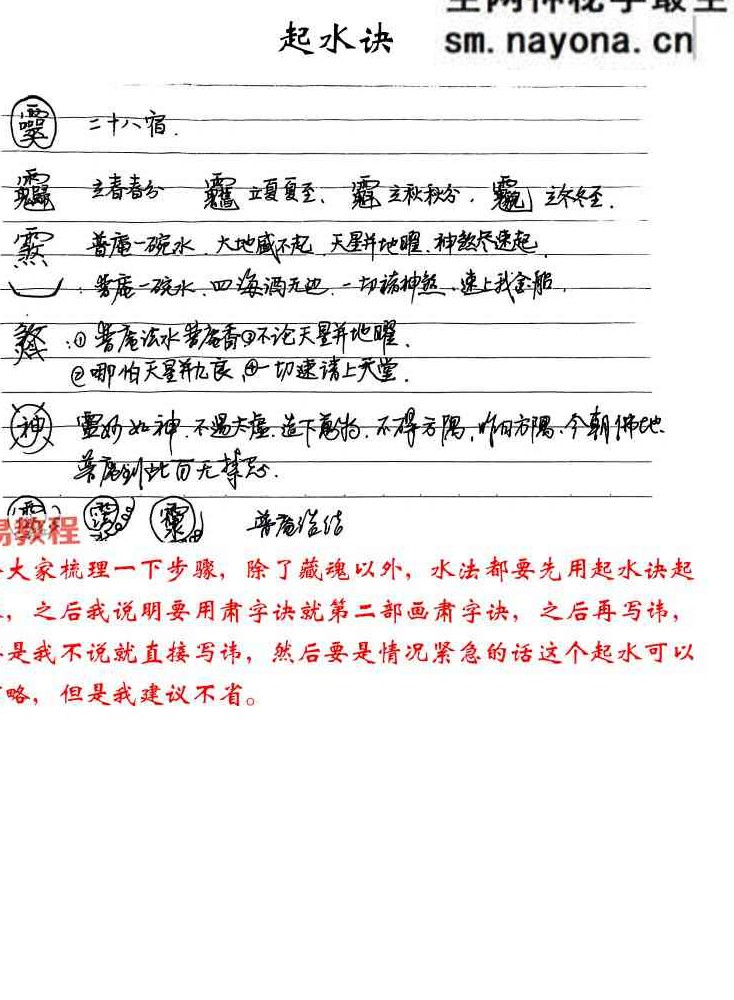 起水诀
sm.nayona.cn
二十八宿.
立春春分 立夏夏至、立秋秋分. 立冬冬至.
普庵一碗水. 大地威不起. 天星并地曜. 神煞尽速起.
普庵一碗水. 四海洒无边. 一切诸神煞. 速上我金船.
① 普庵法水普庵香③不论天星并地曜.
② 哪怕天星并九良. ④一切速请上天堂.
灵妙如神. 不遇太虚. 造下万物. 不得方隅. 昨日方隅. 今朝佛地.
普庵到此百无禁忌.
普庵
易教程
大家梳理一下步骤，除了藏魂以外，水法都要先用起水诀起
，之后我说明要用肃字诀就第二部画肃字诀，之后再写讳，
是我不说就直接写讳，然后要是情况紧急的话这个起水可以
略，但是我建议不省。